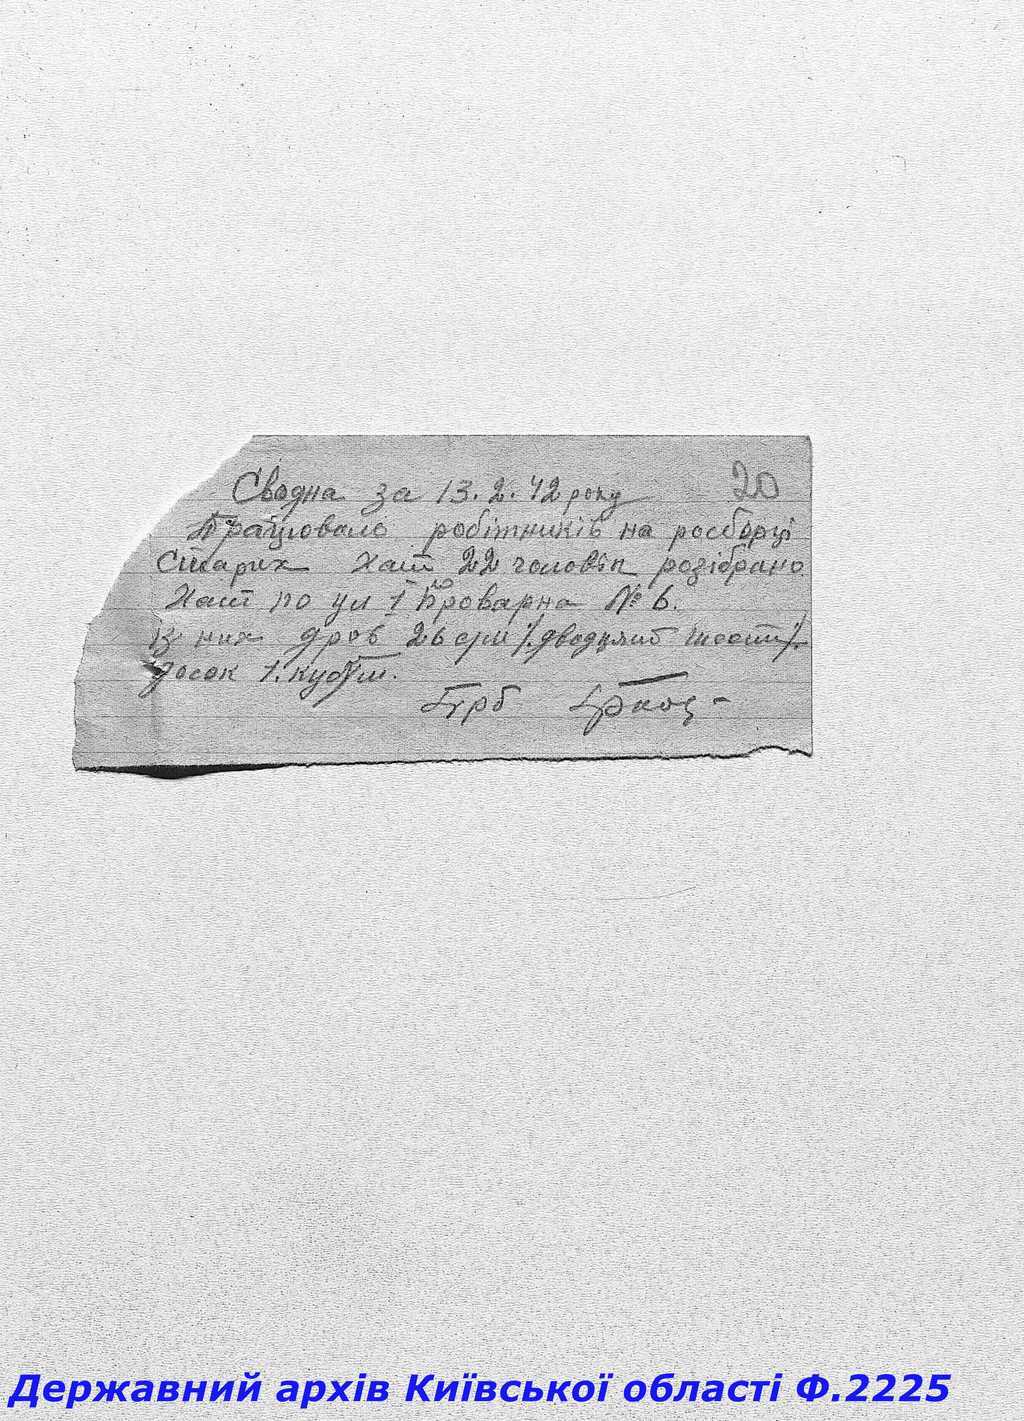 20
Сводна за 13.2.42 року
Працювало робітників на росборці
старих хат 22 чоловік розібрано
Хат по ул Броварна № 6.
Із них дров 26 с/м /.двадцять шость/.
досок 1. куб/м.
Державний архів Київської області Ф.2225